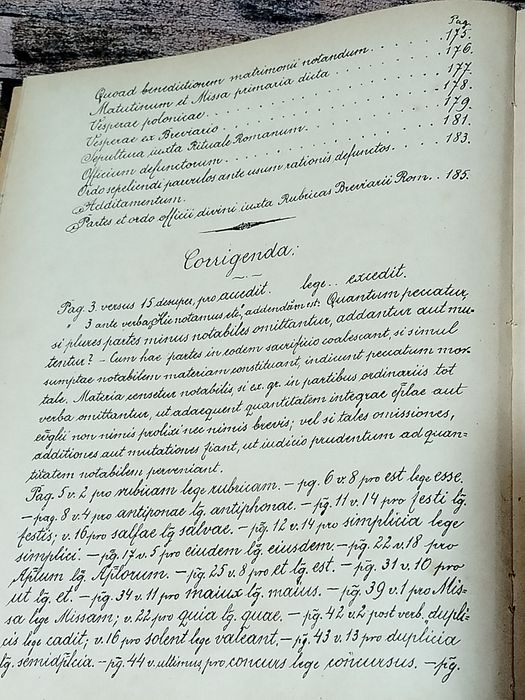 Pag.
Quoad benedictionem matrimonii notandum . . . . . . 175.
Matutinum et Missa primaria dicta . . . . . . 176.
Vesperae polonicae . . . . . . 177.
Vesperae ex Breviario . . . . . . 178.
Sepultura iuxta Rituale Romanum . . . . . . 179.
Officium defunctorum . . . . . . 181.
Ordo sepeliendi parvulos ante usum rationis defunctos . . 183.
Additamentum.
Partes et ordo officii divini iuxta Rubricas Breviarii Rom. . 185.
Corrigenda:
Pag. 3. versus 15 desuper, pro accedit. lege .. excedit.
" 3 ante verba Hic notamus etc, addendum est: Quantum peccatur,
si plures partes minus notabiles omittantur, addantur aut mu-
tentur? – Cum hae partes in eodem sacrificio coalescant, si simul
sumptae notabilem materiam constituant, inducunt peccatum mor-
tale. Materia censetur notabilis, si ex. gr. in partibus ordinariis tot
verba omittantur, ut adaequent quantitatem integrae eplae aut
evglii non nimis prolixi nec nimis brevis; vel si tales omissiones,
additiones aut mutationes fiant, ut iudicio prudentum ad quan-
titatem notabilem perveniant.
Pag. 5 v. 2 pro rubiicam lege rubricam. – pg. 6 v. 8 pro est lege esse.
– pag. 8 v. 4 pro antiponae lg. antiphonae. – pg. 11 v. 14 pro festi lg.
festis; v. 16 pro salfae lg. salvae. – pg. 12 v. 14 pro simplicia lege
simplici. – pg. 17 v. 5 pro eiudem lg. eiusdem. – pg. 22 v. 18 pro
Aptum lg. Aplorum. – pg. 25 v. 8 pro et lg. est. – pg. 31 v. 10 pro
ut lg. et. – pg. 34 v. 11 pro maiux lg. maius. – pg. 39 v. 1 pro Mis-
sa lege Missam; v. 22 pro quia lg. quae. – pg. 42 v. 2 post verb. dupli-
cis lege cadit; v. 16 pro solent lege valeant. – pg. 43 v. 13 pro duplicia
lg. semidplcia. – pg. 44 v. ultimus, pro concurs lege concursus. – pg.